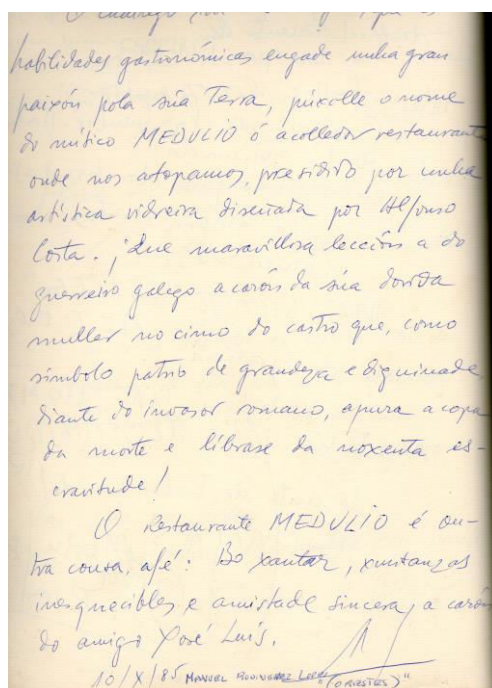 habilidades gastronómicas engade unha gran
paixón pola súa Terra, púxolle o nome
do mítico MEDULIO ó acolledor restaurante
onde nos atopamos, presidido por unha
artística vidreira diseñada por Alfonso
Costa. ¡Que maravillosa lección a do
guerreiro galego a carón da súa dorida
muller no cimo do castro que, como
símbolo patrio de grandeza e dignidade
diante do invasor romano, apura a copa
da morte e líbrase da noxenta es-
cravitude!
O Restaurante MEDULIO é ou-
tra cousa, afé: Bo xantar, xuntanzas
inesquecibles e amistade sincera, a carón
do amigo Xosé Luís.
10/X/85 MANUEL RODRIGUEZ LOPEZ "(ORESTES)"